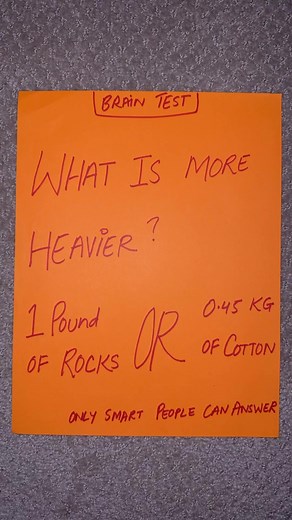 BRAIN TEST
WHAT IS MORE
HEAVIER?
1 Pound
OF ROCKS
OR
0.45 KG
OF COTTON
ONLY SMART PEOPLE CAN ANSWER